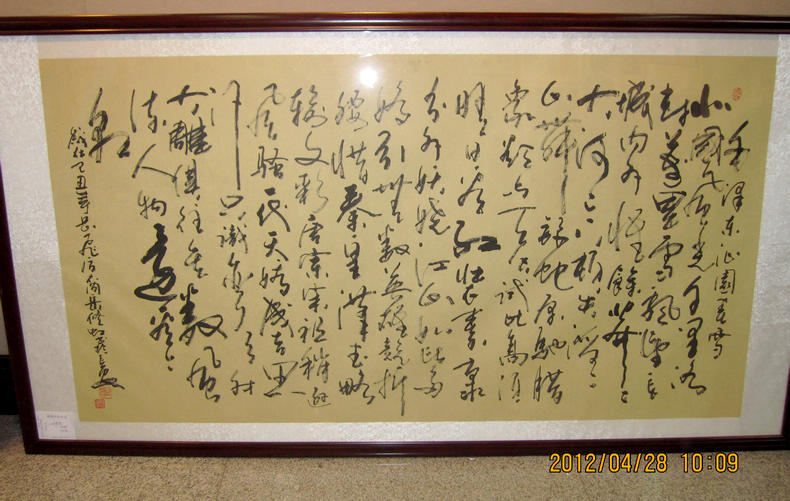 毛泽东沁园春雪
北國风光千里冰
封萬里雪飘望长
城内外惟餘莽莽
大河上下顿失滔滔
山舞银蛇原驰腊
象欲与天公试比高须
晴日看红装素裹
分外妖娆江山如此多
娇引无数英雄竞折
腰惜秦皇漢武略
输文彩唐宗宋祖稍逊
风骚一代天骄成吉思
汗只识弯弓射
大雕俱往矣数风
流人物还看今
朝
岁在己丑年
2012/04/28 10:09